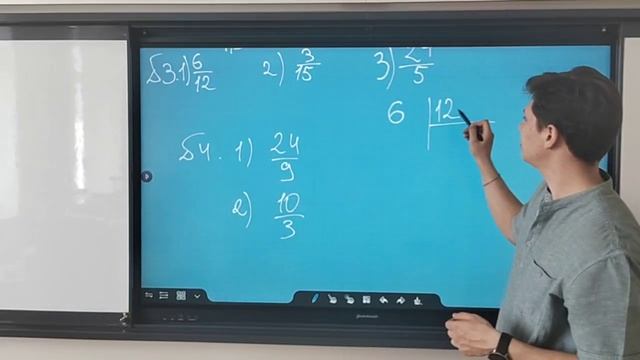 53. 1) 6/12 2) 3/15 3) 24/5
6 12
54. 1) 24/9
2) 10/3